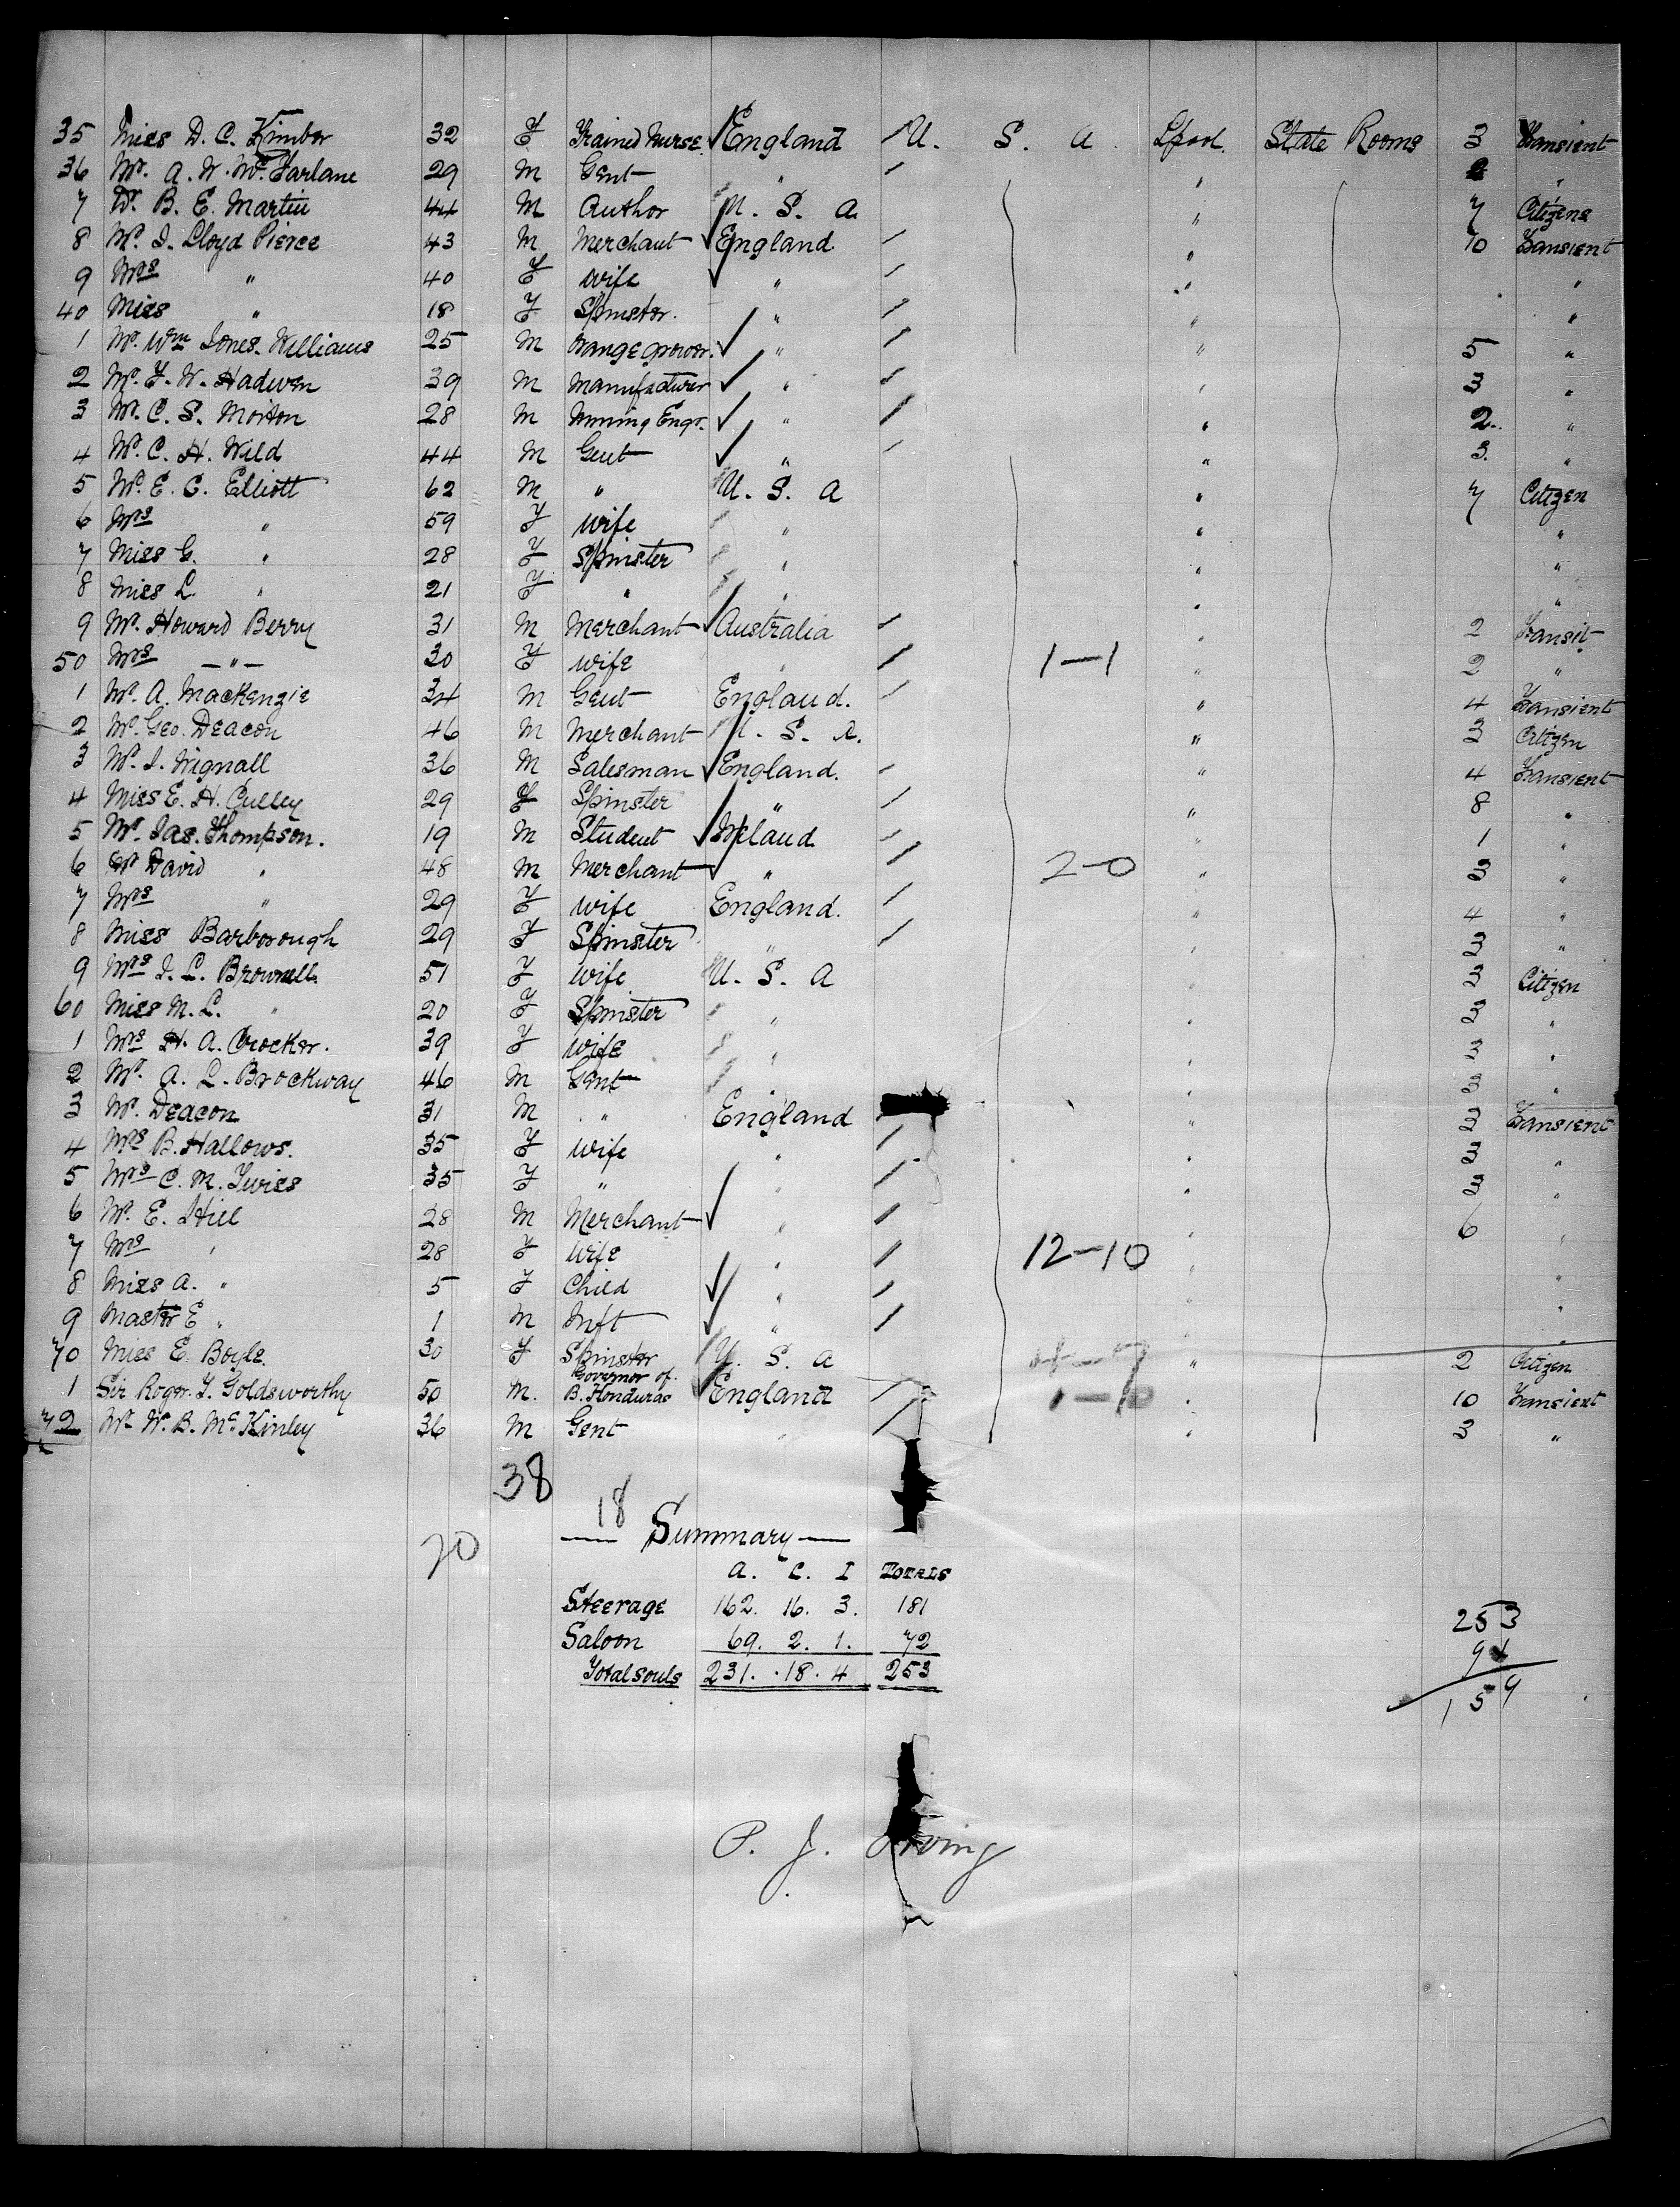 35 Miss D. C. Kimber 32 F Trained Nurse England U. S. A. Lpool. State Rooms 3 Transient
36 Mr. A. W. McFarlane 29 M Gent " " "
7 Dr. B. E. Martin 44 M Author U. S. A. " 7 Citizens
8 Mr. J. Lloyd Pierce 43 M Merchant England " 10 Transient
9 Mrs " 40 F wife " " "
40 Miss " 18 F Spinster. " " "
1 Mr. Wm Jones-Williams 25 M Orange grower. " " 5 "
2 Mr. F. W. Hadwen 39 M Manufacturer " " 3 "
3 Mr. C. S. Morton 28 M Mining Engr. " " 2. "
4 Mr. C. H. Wild 44 M Gent " " 3. "
5 Mr. E. C. Elliott 62 M " U. S. A " 7 Citizen
6 Mrs " 59 F wife " " "
7 Miss G. " 28 F Spinster " " "
8 Miss L. " 21 F " " " "
9 Mr. Howard Berry 31 M Merchant Australia " 2 Transit
50 Mrs — " — 30 F wife " 1—1 " 2 "
1 Mr. A. Mackenzie 34 M Gent England. " 4 Transient
2 Mr. Geo. Deacon 46 M Merchant U. S. A. " 3 Citizen
3 Mr. J. Wignall 36 M Salesman England. " 4 Transient
4 Miss E. H. Culley 29 F Spinster " " 8 "
5 Mr. Jas. Thompson. 19 M Student Ireland " 1 "
6 Mr David " 48 M Merchant " 2—0 " 3 "
7 Mrs " 29 F wife England. " 4 "
8 Miss Barborough 29 F Spinster " " 3 "
9 Mrs J. L. Brownell 51 F wife U. S. A " 3 Citizen
60 Miss M. L. " 20 F Spinster " " 3 "
1 Mrs H. A. Crocker. 39 F wife " " 3 "
2 Mr. A. L. Brockway 46 M Gent " " 3 "
3 Mr. Deacon 31 M " England " 3 Transient
4 Mrs B. Hallows. 35 F wife " " 3 "
5 Mrs C. M. Twiss 35 F " " " 3 "
6 Mr. E. Hill 28 M Merchant " " 6 "
7 Mrs " 28 F wife " 12—10 "
8 Miss A. " 5 F Child " " "
9 Master E " 1 M Inft " " "
70 Miss E. Boyle. 30 F Spinster U. S. A 4—7 " 2 Citizen
1 Sir Roger T. Goldsworthy 50 M. Governor of B. Honduras England 1—0 " 10 Transient
72 Mr W. B. McKinley 36 M Gent " " 3 "
38
18
20
— Summary —
A. C. I Totals
Steerage 162. 16. 3. 181
Saloon 69. 2. 1. 72
Total souls 231. 18. 4 253
253
94
159
P. J. Irving